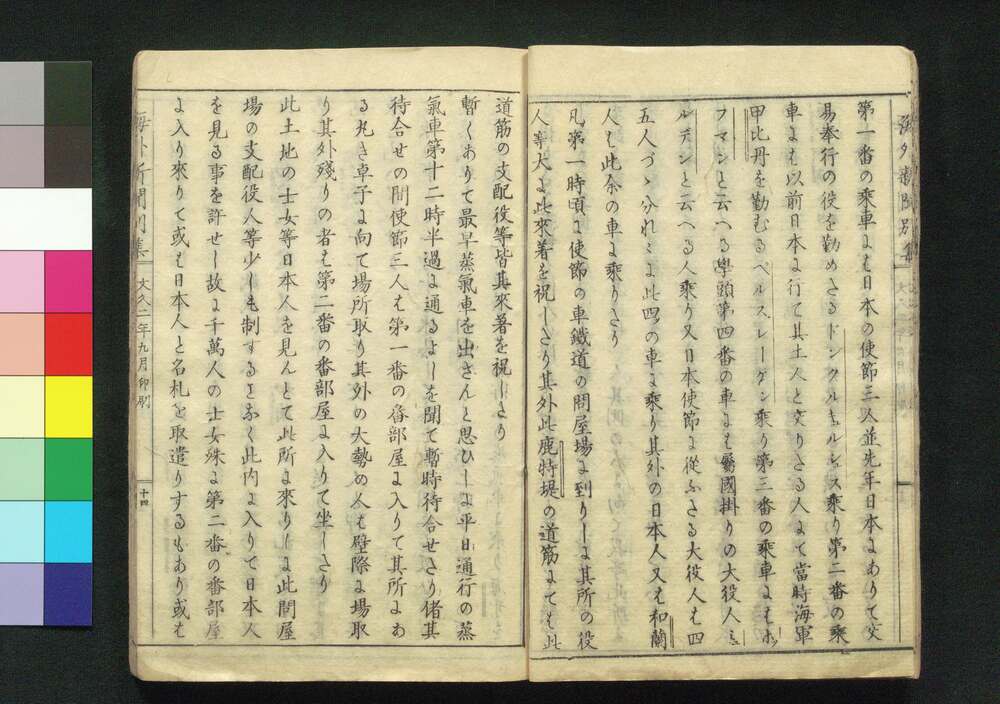 第一番の乗車には日本の使節三人並先年日本にありて交
易奉行の役を勤めたるドンクルキュルシュス乗り第二番の乗
車には以前日本に行て其土人と交りたる人にて當時海軍
甲比丹を勤むるベルスレーケン乗り第三番の乗車にはホッ
フマンと云へる學頭第四番の車には屬國掛りの大役人
ルデンと云へる人乗り又日本使節に從ふたる大役人も四
五人づゝ分れミに此四の車に乗り其外の日本人又は和蘭
人は此余の車に乗りたり
凡第一時頃に使節の車鐵道の問屋場に到りしに其所の役
人等大に此來着を祝したり其外此鹿特堤の道筋にても此
道筋の支配役等皆其來着を祝したり
暫くありて最早蒸氣車を出さんと思ひしに平日通行の蒸
氣車第十二時半過に通るよしを聞て暫時待合せたり偖其
待合せの間使節三人は第一番の番部屋に入りて其所にあ
る丸き卓子に向て場所取り其外の大勢の人は壁際に場取
り其外殘りの者は第二番の番部屋に入りて坐したり
此土地の士女等日本人を見んとて此所に來りしに此問屋
場の支配役人等少しも制することなく此内に入りて日本人
を見る事を許せし故に千萬人の士女殊に第二番の番部屋
に入り來りて或は日本人と名札を取遣りするもあり或は
海外新聞別集
文久二年九月印刷
十四